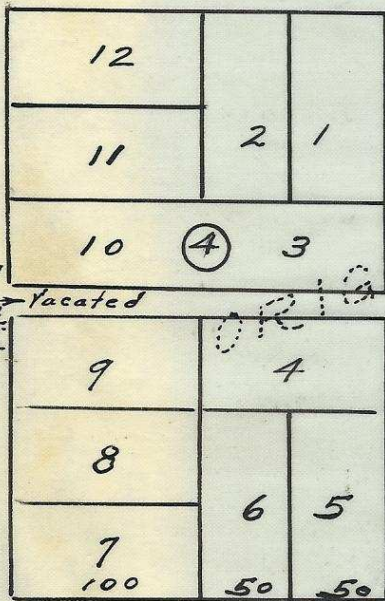 12
2 1
11
10 4 3
Vacated
ORIG
9 4
8
6 5
7
100 50 50